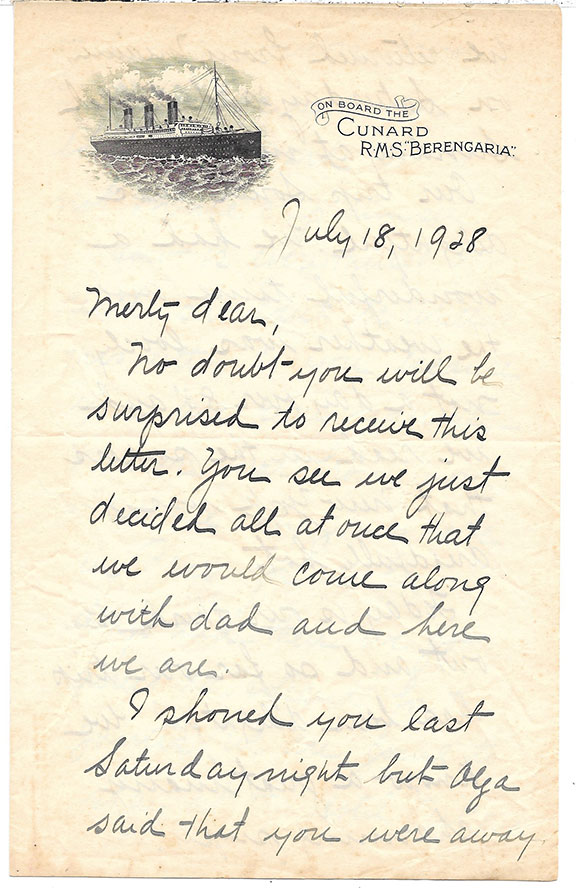 ON BOARD THE
CUNARD
R.M.S. "BERENGARIA".
July 18, 1928
dear,
No doubt you will be
surprised to receive this
letter. You see we just
decided all at once that
we would come along
with dad and here
we are.
I phoned you last
Saturday night but Olga
said that you were away